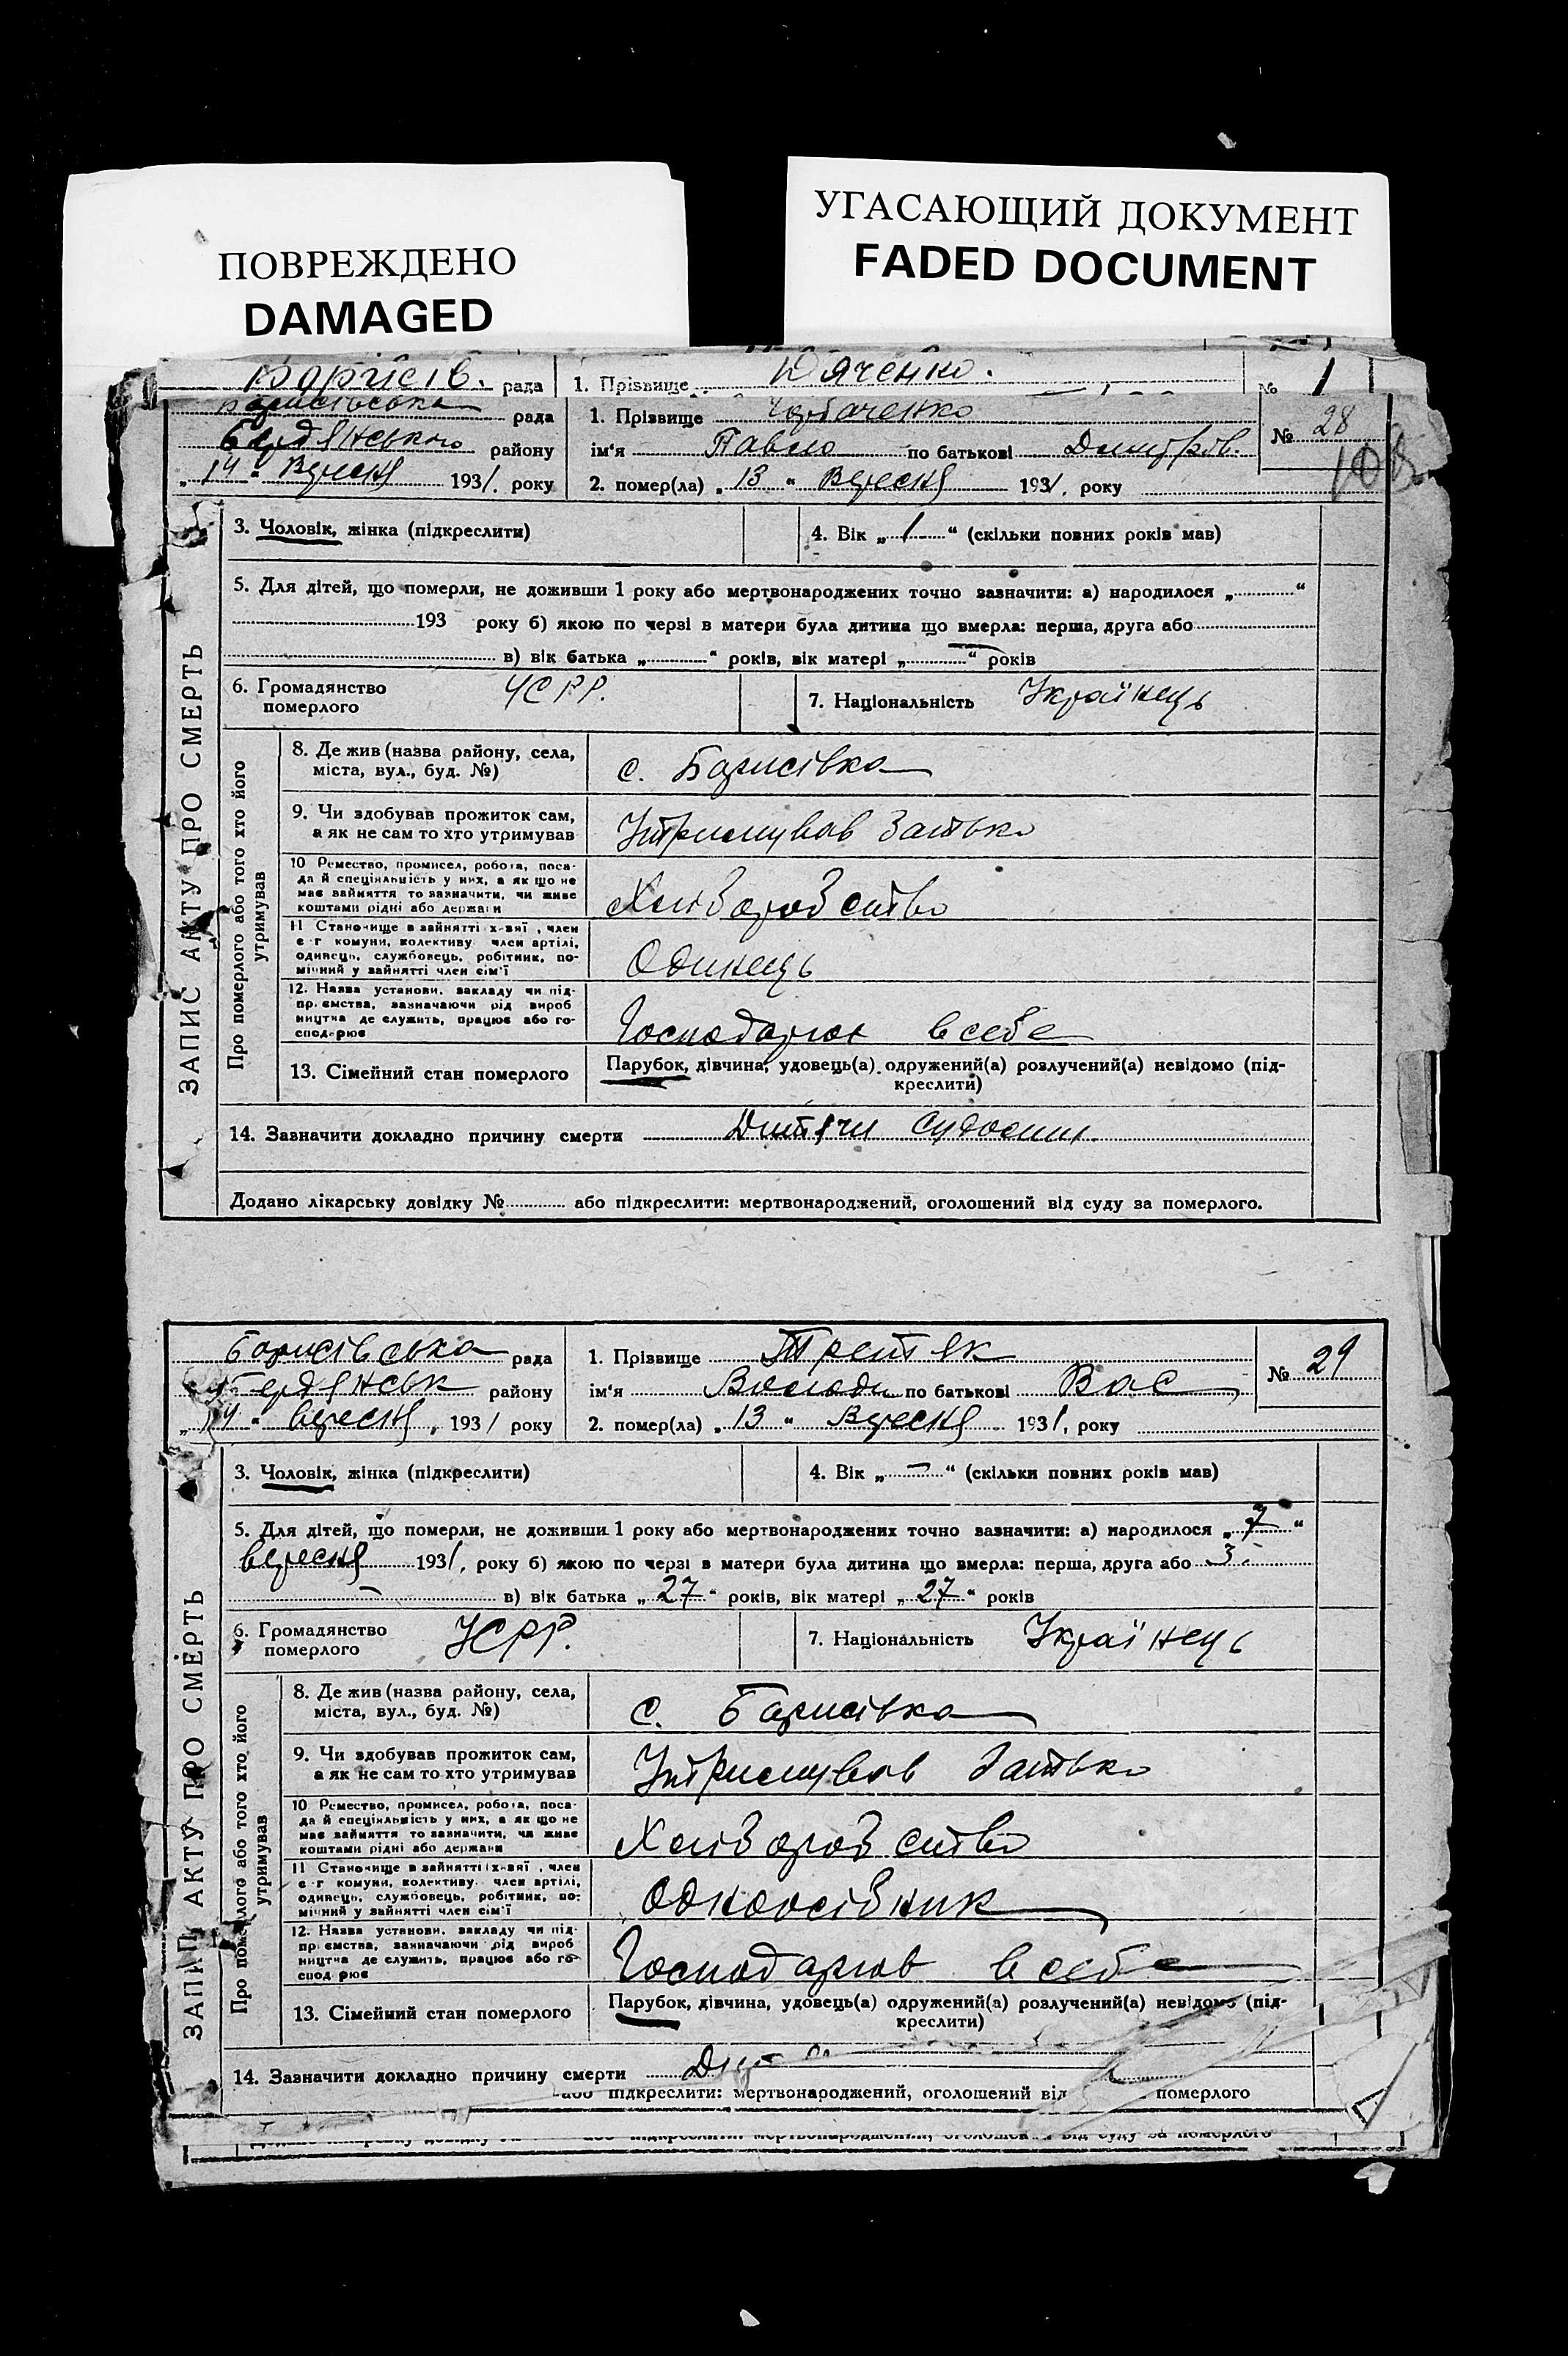 ПОВРЕЖДЕНО
DAMAGED
УГАСАЮЩИЙ ДОКУМЕНТ
FADED DOCUMENT
Борисів. рада 1. Прізвище Дяченко. № 1
Борисівська рада 1. Прізвище № 28
Бердянського району ім'я Павло по батькові Дмитров.
„14" Вересня 1931. року 2. помер(ла) „13" Вересня 1931. року
3. Чоловік, жінка (підкреслити) 4. Вік „1" (скільки повних років мав)
5. Для дітей, що померли, не доживши 1 року або мертвонароджених точно зазначити: а) народилося „ "
193 року б) якою по черзі в матери була дитина що вмерла: перша, друга або
в) вік батька „ " років, вік матері „—" років
6. Громадянство померлого УСРР. 7. Національність Українець
ЗАПИС АКТУ ПРО СМЕРТЬ
Про померлого або того хто його утримував
8. Де жив (назва району, села, міста, вул., буд. №) с. Борисівка
9. Чи здобував прожиток сам, а як не сам то хто утримував Утримував батько
10 Ремество, промисел, робота, поса-
да й спеціяльність у них, а як що не
має зайняття то зазначити, чи живе
коштами рідні або держави Хліборобство
11 Становище в зайнятті х-вяї, член
с-г комуни, колективу член артілі,
одинець, службовець, робітник, по-
мічний у зайнятті член сім'ї Одинець
12. Назва установи, закладу чи під-
приємства, зазначаючи рід вироб
ництва де служить, працює або го-
сподарює Господарює в себе
13. Сімейний стан померлого Парубок, дівчина, удовець(а) одружений(а) розлучений(а) невідомо (під-
креслити)
14. Зазначити докладно причину смерти Дитячи судосиш.
Додано лікарську довідку № або підкреслити: мертвонароджений, оголошений від суду за померлого.
Борисівська рада 1. Прізвище Третяк № 29
Бердянськ району ім'я Володи по батькові Вас
„14" вересня, 1931 року 2. помер(ла) „13" Вересня 1931, року
3. Чоловік, жінка (підкреслити) 4. Вік „—" (скільки повних років мав)
5. Для дітей, що померли, не доживши 1 року або мертвонароджених точно зазначити: а) народилося „7"
вересня 1931, року б) якою по черзі в матери була дитина що вмерла: перша, друга або 3.
— в) вік батька „27" років, вік матері „27" років
6. Громадянство померлого УСРР. 7. Національність Українець
ЗАПИС АКТУ ПРО СМЕРТЬ
Про померлого або того хто його утримував
8. Де жив (назва району, села, міста, вул., буд. №) с. Борисівка
9. Чи здобував прожиток сам, а як не сам то хто утримував Утримував батько
10 Ремество, промисел, робота, поса-
да й спеціяльність у них, а як що не
має зайняття то зазначити, чи живе
коштами рідні або держави Хліборобство
11 Становище в зайнятті х-вяї, член
с-г комуни, колективу член артілі,
одинець, службовець, робітник, по-
мічний у зайнятті член сім'ї Одноосібник
12. Назва установи, закладу чи під-
приємства, зазначаючи рід вироб
ництва де служить, працює або го-
сподарює Господарював в себе
13. Сімейний стан померлого Парубок, дівчина, удовець(а) одружений(а) розлучений(а) невідомо (під-
креслити)
14. Зазначити докладно причину смерти
або підкреслити: мертвонароджений, оголошений від померлого
підкреслити: мертвонароджений, оголошений від суду за померлого